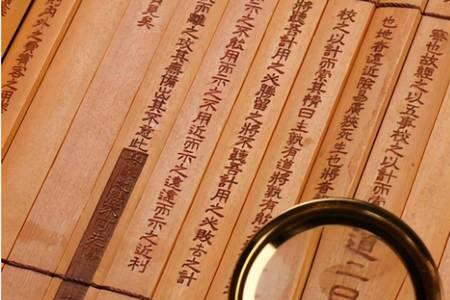 察也故經之以五事校之以計而索
也地者遠近險易廣狹死生也將者
校之以計而索其情曰主孰有道將孰有能
將聽吾計用之必勝留之將不聽吾計用之必敗去之計
示之不能用而示之不用近而示之遠遠而示之近利
而離之攻其無備出其不意此
勝不可先
見矣
外之費賓客之用
道二曰